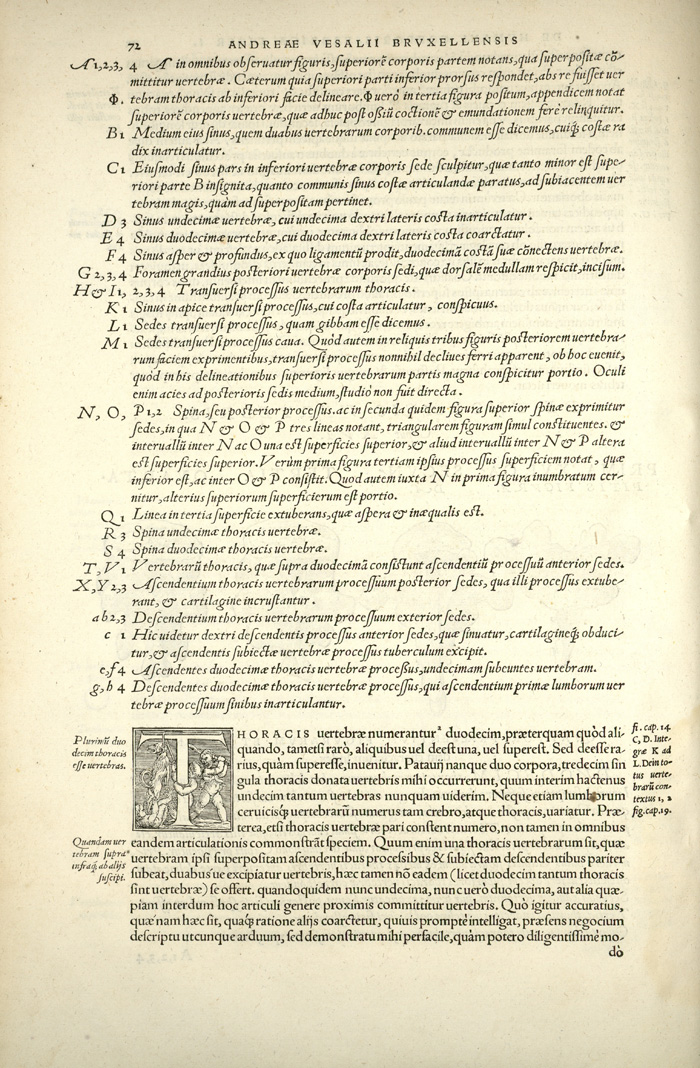 72 ANDREAE VESALII BRVXELLENSIS
A 1, 2, 3, 4 A in omnibus obseruatur figuris, superiorē corporis partem notans, qua superpositæ cō-
mittitur uertebræ. Cæterum quia superiori parti inferior prorsus respondet, abs re fuisset uer
Φ. tebram thoracis ab inferiori facie delineare. Φ uerò in tertia figura positum, appendicem notat
superiorē corporis uertebræ, quæ adhuc post ossiū coctionē & emundationem ferè relinquitur.
B 1 Medium eius sinus, quem duabus uertebrarum corporib. communem esse dicemus, cuiq́; costæ ra
dix inarticulatur.
C 1 Eiusmodi sinus pars in inferiori uertebræ corporis sede sculpitur, quæ tanto minor est supe-
riori parte B insignita, quanto communis sinus costæ articulandæ paratus, ad subiacentem uer
tebram magis, quàm ad superpositam pertinet.
D 3 Sinus undecimæ uertebræ, cui undecima dextri lateris costa inarticulatur.
E 4 Sinus duodecimæ uertebræ, cui duodecima dextri lateris costa coarctatur.
F 4 Sinus asper & profundus, ex quo ligamentū prodit, duodecimā costā suæ cōnectens uertebræ.
G 2, 3, 4 Foramen grandius posteriori uertebræ corporis sedi, quæ dorsalē medullam respicit, incisum.
H & I 1, 2, 3, 4 Transuersi processus uertebrarum thoracis.
K 1 Sinus in apice transuersi processus, cui costa articulatur, conspicuus.
L 1 Sedes transuersi processus, quam gibbam esse dicemus.
M 1 Sedes transuersi processus caua. Quòd autem in reliquis tribus figuris posteriorem uertebra-
rum faciem exprimentibus, transuersi processus nonnihil decliues ferri apparent, ob hoc euenit,
quòd in his delineationibus superioris uertebrarum partis magna conspicitur portio. Oculi
enim acies ad posterioris sedis medium, studiò non fuit directa.
N, O, P 1, 2 Spina, seu posterior processus. ac in secunda quidem figura superior spinæ exprimitur
sedes, in qua N & O & P tres lineas notant, triangularem figuram simul constituentes. &
interuallū inter N ac O una est superficies superior, & aliud interuallū inter N & P altera
est superficies superior. Verùm prima figura tertiam ipsius processus superficiem notat, quæ
inferior est, ac inter O & P consistit. Quod autem iuxta N in prima figura inumbratum cer-
nitur, alterius superiorum superficierum est portio.
Q 1 Linea in tertia superficie extuberans, quæ aspera & inæqualis est.
R 3 Spina undecimæ thoracis uertebræ.
S 4 Spina duodecimæ thoracis uertebræ.
T, V 1 Vertebrarū thoracis, quæ supra duodecimā consistunt ascendentiū processuū anterior sedes.
X, Y 2, 3 Ascendentium thoracis uertebrarum processuum posterior sedes, qua illi processus extube-
rant, & cartilagine incrustantur.
a b 2, 3 Descendentium thoracis uertebrarum processuum exterior sedes.
c 1 Hic uidetur dextri descendentis processus anterior sedes, quæ sinuatur, cartilagineq́; obduci-
tur, & ascendentis subiectæ uertebræ processus tuberculum excipit.
e, f 4 Ascendentes duodecimæ thoracis uertebræ processus, undecimam subeuntes uertebram.
g, h 4 Descendentes duodecimæ thoracis uertebræ processus, qui ascendentium primæ lumborum uer
tebræ processuum sinibus inarticulantur.
Plurimū duo
decim thoracis
esse uertebras.
THORACIS uertebræ numerantur ² duodecim, præterquam quòd ali-
quando, tametsi rarò, aliquibus uel deest una, uel superest. Sed deesse ra-
rius, quàm superesse, inuenitur. Patauij nanque duo corpora, tredecim sin
gula thoracis donata uertebris mihi occurrerunt, quum interim hactenus
undecim tantum uertebras nunquam uiderim. Neque etiam lumborum
ceruicisq́; uertebrarū numerus tam crebro, atque thoracis, uariatur. Præ-
terea, etsi thoracis uertebræ pari constent numero, non tamen in omnibus
eandem articulationis commonstrāt speciem. Quum enim una thoracis uertebrarum sit, quæ
uertebram ipsi superpositam ascendentibus processibus & subiectam descendentibus pariter
subeat, duabusúe excipiatur uertebris, hæc tamen nō eadem (licet duodecim tantum thoracis
sint uertebræ) se offert. quandoquidem nunc undecima, nunc uerò duodecima, aut alia quæ-
piam interdum hoc articuli genere proximis committitur uertebris. Quò igitur accuratius,
quæ nam hæc sit, quaq́; ratione alijs coarctetur, quiuis promptè intelligat, præsens negocium
descriptu utcunque arduum, sed demonstratu mihi perfacile, quàm potero diligentissimè mo-
dò
fi. cap. 14
C, D. Inte-
græ K ad
L. Dein to-
tus uerte-
brarū con-
textus 1, 2
fig. cap. 19.
Quandam uer
tebram supra
infraq́; ab alijs
suscipi.